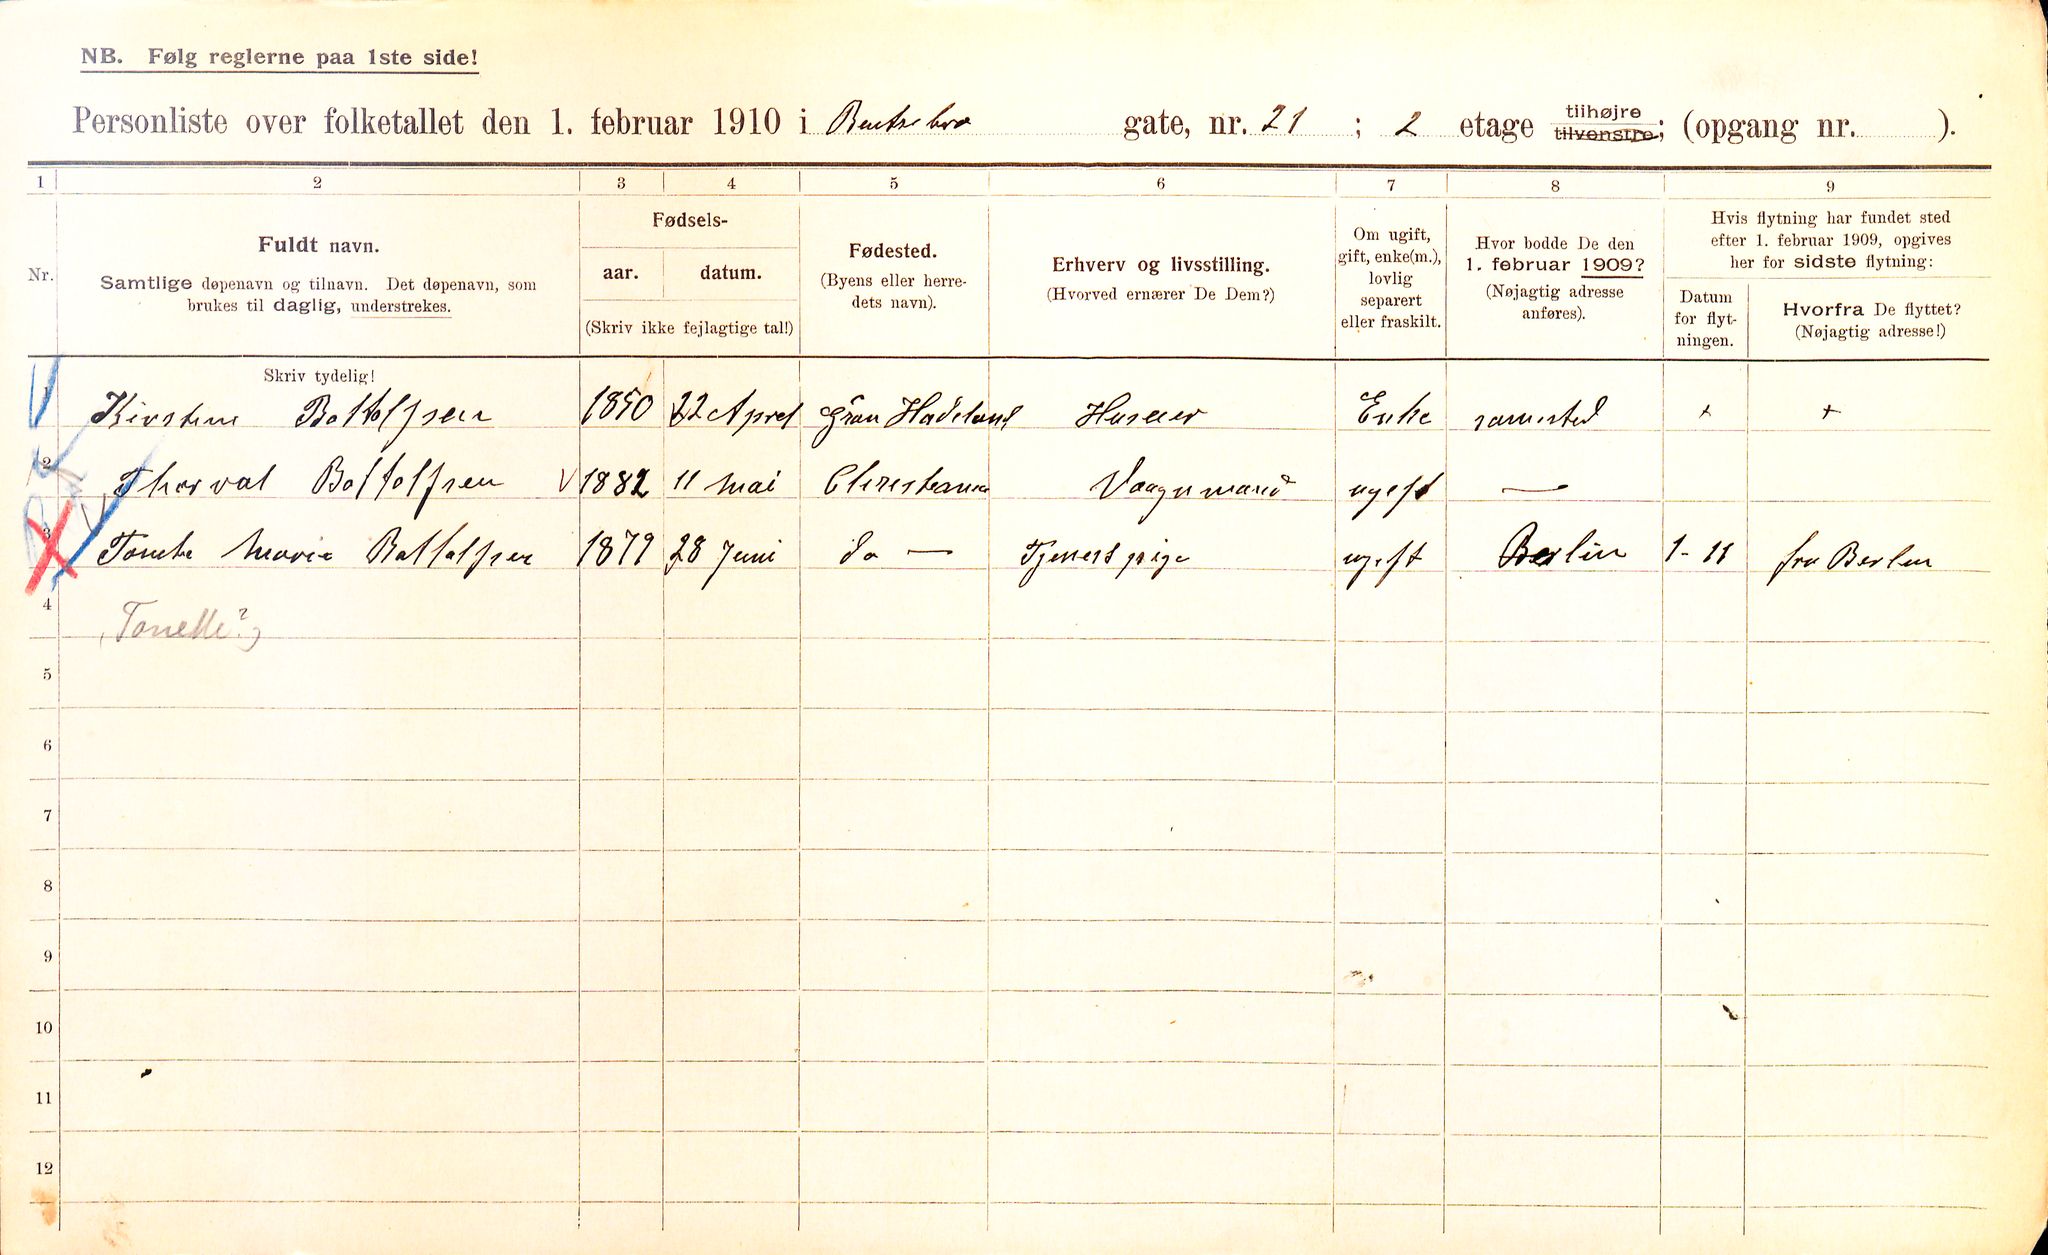 NB. Følg reglerne paa 1ste side!
Personliste over folketallet den 1. februar 1910 i Bentsebro gate, nr. 21 ; 2 etage tilhøjre tilvenstre; (opgang nr. ).
1 2 3 4 5 6 7 8 9
Nr.
Fuldt navn.
Samtlige døpenavn og tilnavn. Det døpenavn, som
brukes til daglig, understrekes.
Fødsels-
aar. datum.
(Skriv ikke fejlagtige tal!)
Fødested.
(Byens eller herre-
dets navn).
Erhverv og livsstilling.
(Hvorved ernærer De Dem?)
Om ugift,
gift, enke(m.),
lovlig
separert
eller fraskilt.
Hvor bodde De den
1. februar 1909?
(Nøjagtig adresse
anføres).
Hvis flytning har fundet sted
efter 1. februar 1909, opgives
her for sidste flytning:
Datum
for flyt-
ningen.
Hvorfra De flyttet?
(Nøjagtig adresse!)
Skriv tydelig!
1 Kirstine Bottolfsen 1850 22 April Gran Hadeland Huseier Enke samested + +
2 Thorval Bottolfsen V 1882 11 Mai Christiania Vaagnmand ugift —
3 Marie Bottolfsen 1879 28 Juni do — Tjenestpige ugift Berlin 1-11 fra Berlin
4 (Tonette?)
5
6
7
8
9
10
11
12